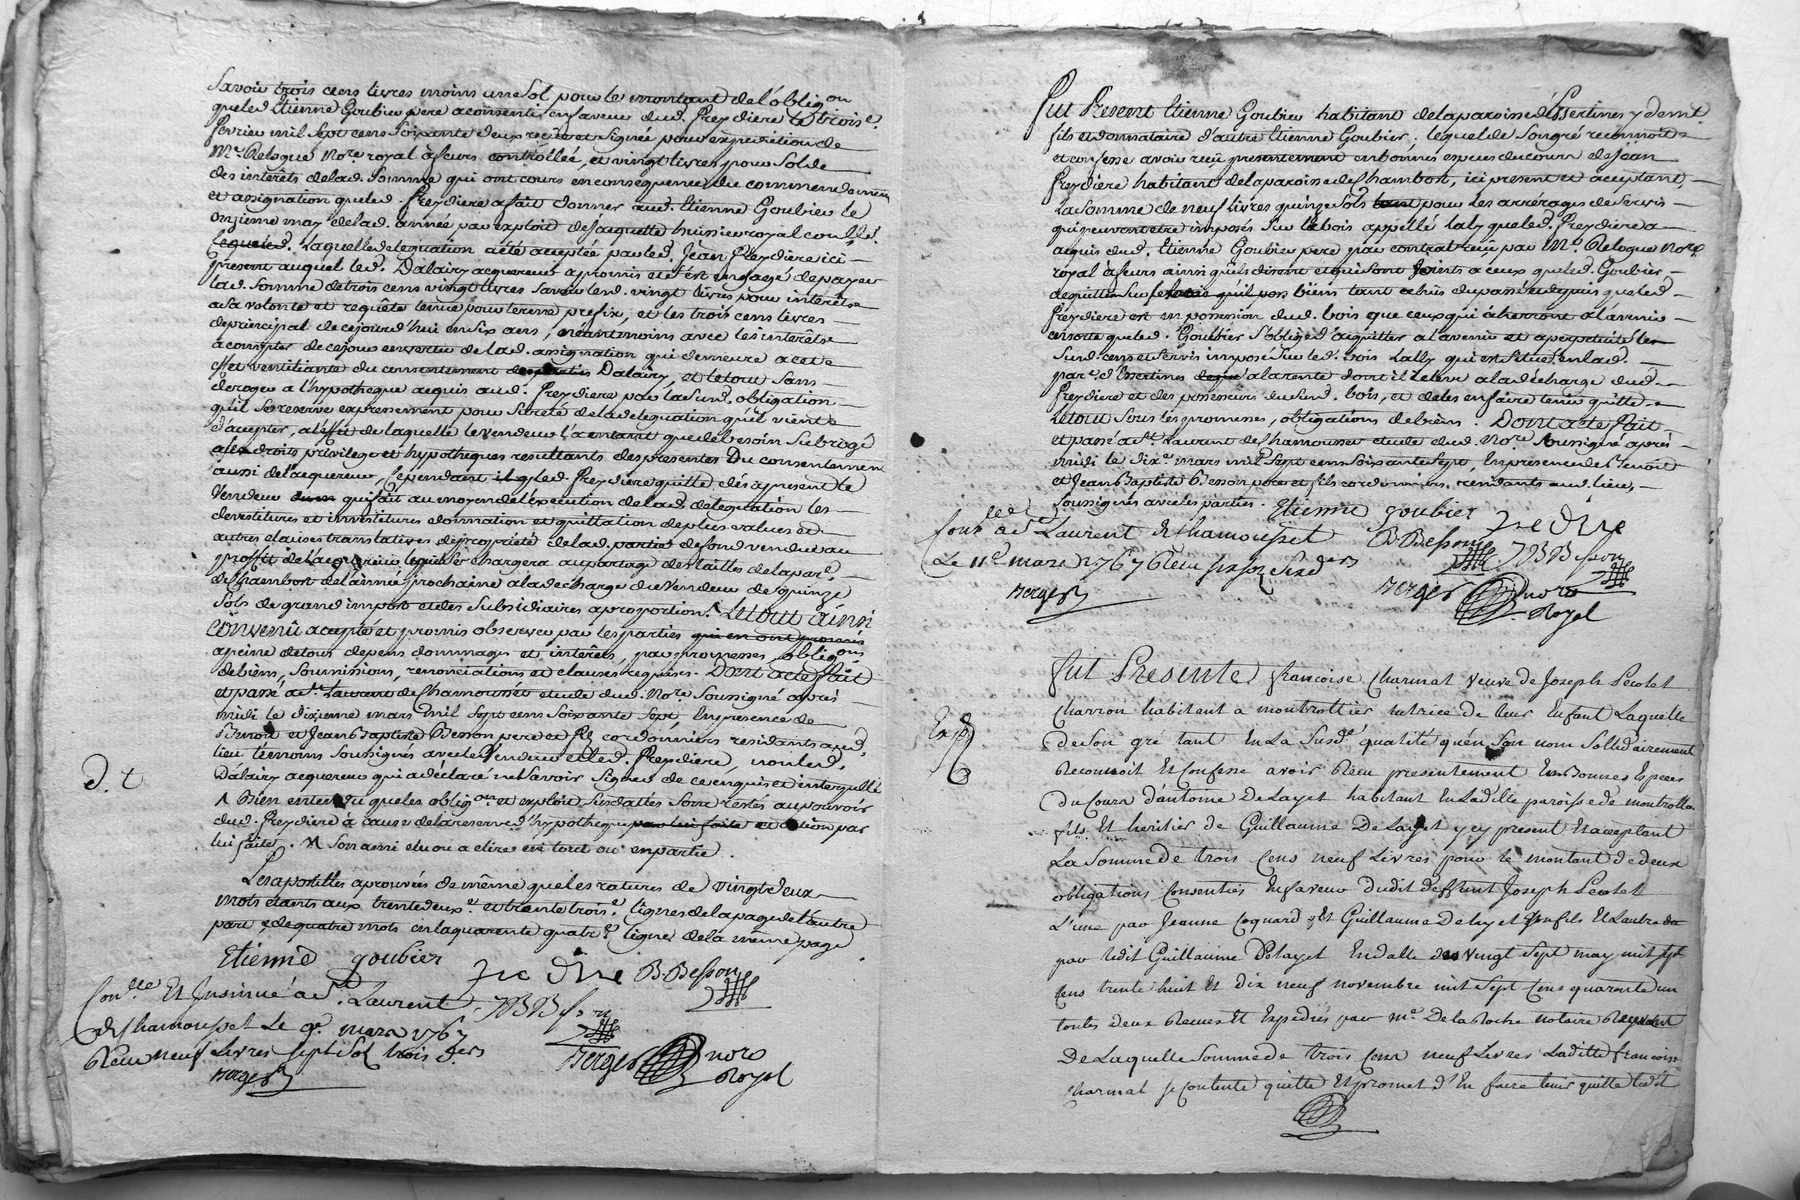 Savoir trois cens livres moins un sol pour le montant de l'oblig.on
que led. Etienne Goubier pere a consenti en faveur dud. Freydiere le trois.e
fevrier mil sept cens soixante deux receüe et signée pour expedition de
M.e Relogue No.re royal à feurs controllée, et vingt livres pour solde
des interêts de lad. somme qui ont cours en consequence du commendement
et assignation que led. Freydiere a fait donner aud. Etienne Goubier le
onzieme may de lad. année par exploit de Jacquette huissier royal con.lé
lequeled. laquelle deleguation a été acceptée par led. Jean Freydiere ici
present auquel led. Dalairy acquereur a promis et s'est engagé de payer
lad. somme de trois cens vingt livres savoir lesd. vingt livres pour interêts
a sa volonté et requête tenue pour terme prefix, et les trois cens livres
de principal de ce jourd'hui en six ans, néantmoins avec les interêts
a compter de ce jour en vertu de lad. assignation qui demeure a cet
effet ventillante du consentement desparties Dalairy, et le tout sans
deroger a l'hypotheque acquis aud. Freydiere par la susd. obligation
qu'il se reserve expressement pour sureté de la delegation qu'il vient
d'accepter, a l'effet de laquelle le vendeur l'a entant que de besoin subrogé
a les droits privilege et hypotheques resultants des presentes du consentement
aussi de l'acquereur, cependant il q led. Freydiere quitte dès apresent le
vendeur qui fait au moyen de l'execution de lad. delegation les
devestitures et investitures donnation et quittation de plus values et
autres clauses translatives de proprieté de lad. partie de fond vendue au
proffit de l'acquereur lequel se chargera au partage des tailles de la par.e
de Chambost de l'année prochaine a la décharge du vendeur de quinze
sols de grand impost et des subsidiaires a proportion. ^ Le tout ainsi
convenû accepté et promis observer par les parties qui en ont promis
a peine de tous depens dommages et interêts, par promesses, oblig.ons
de biens, soumissions, renonciations et clauses requises. Dont acte fait
et passé a S.t Laurent de Chamousset etude dud. No.re soussigné après
midi le dixieme mars mil sept cens soixante sept, en presence de
Benoit et Jean Baptiste Besson pere et fils cordonniers residants aud.
lieu temoins soussignés avec le vendeur et led. Freydiere, non led.
Dalairy acquereur qui a déclaré ne savoir signer de ce enquis et interpellé
^ Bien entendu que les oblig.on et exploit susdattés sont restés au pouvoir
dud. Freydiere à cause de la reserve d'hypotheque par lui faite et action par
lui faite. ^ son ami elu ou a elire en tout ou en partie.
Les apostilles aprouvées de même que les ratures de vingt deux
mots etants aux trente deux.e et trente trois.e lignes de la page de l'autre
part & de quatre mots en la quarante quatr.e ligne de la même page
Etienne goubier
B. Besson
Con.llé Et Insinué a S.t Laurent
de Chamousset Le 9.e mars 1767
Recu neuf Livres sept sol trois d.ers
Berger
Berger no.re
Royal
d. t
fut Present Etienne Goubier habitant de la paroisse d'Essertines y dem.t
fils et donnataire d'autre Etienne Goubier; lequel de son gré reconnoit
et confesse avoir reçu presentement en bonnes especes du cours de Jean
Freydiere habitant de la paroisse de Chambost, ici present et acceptant,
la somme de neuf livres quinze sols tant pour les arrérages de servis
qui peuvent etre imposés sur le bois appellé Laly que led. Freydiere a
acquis dud. Etienne Goubier pere par contrat reçu par M.e Relogue No.re
royal à feurs ainsi qu'ils disent et qui sont joints a ceux que led. Goubier
acquitte sur ses bois qu'il pos biens tant a luis du passé et depuis que led.
Freydiere est en possession dud. bois que ceux qui écherront a l'avenir
en sorte que led. Goubier s'oblige d'aquitter a l'avenir et a perpetuité les
susd. cens et servis imposés sur led. bois Lally qui est situé en lad.
par.e d'Essertines a la rente dont il releve a la décharge dud.
Freydiere et des possesseurs du susd. bois, et de les en faire tenir quitte
Le tout sous les promesses, obligations de biens. Dont acte fait
et passé a S.t Laurent de Chamousset etude dud. No.re soussigné après
midi le dix.e mars mil sept cens soixante sept, en presence de Benoit
et Jean Baptiste Besson pere et fils cordonniers residants aud. lieu,
soussignés avec les parties. Etienne goubier
Con.llé a S.t Laurent de Chamousset
B. Besson
Le 11.e mars 1767
Berger
Berger no.re
Royal
fut Presente françoise Charmat veuve de Joseph Peotet
Charron habitant a montrottier tutrice de leur Enfant Laquelle
de son gré tant En La susd.e qualité qu'en son nom sollidairement
Reconnoit Et Confesse avoir Recu presentement En Bonnes Espèces
Du Cours d'antoine DeLayet habitant En Laditte paroisse de montrottier
fils Et heritier de Guillaume DeLayet y cy present Et acceptant
La somme de trois Cens neuf Livres pour le montant de deux
obligations Consenties En faveur dudit deffunt Joseph Peotet
L'une par Jeanne Coquard & Et Guillaume Delayet son fils Et Lautre
par ledit Guillaume Delayet En datte des vingt sept may mil sept
Cens trente huit Et dix neuf novembre mil sept Cens quarante un
toutes deux Recues Et Expediées par M.e DeLaRoche notaire
De Laquelle somme de trois Cens neuf Livres Laditte françoise
Charmat se Contente quitte Et promet d'En faire tenir quitte ledit